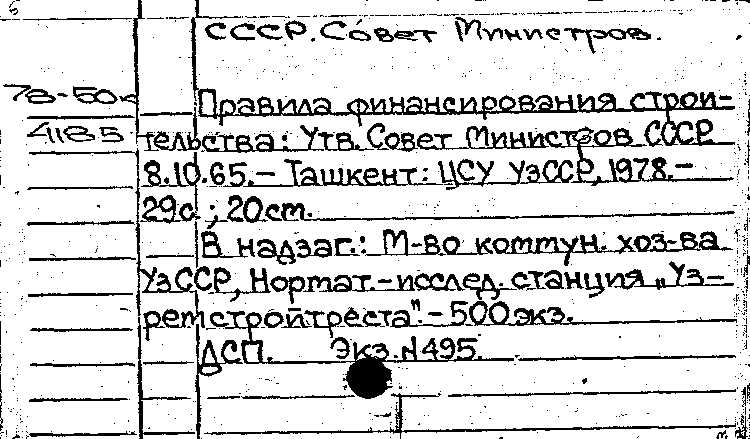 СССР. Совет Министров.
78-50к
Правила финансирования строи-
4185 тельства: Утв. Совет Министров СССР
8.10.65.- Ташкент: ЦСУ УзССР, 1978.-
29с ; 20см.
В надзаг.: М-во коммун. хоз-ва
УзССР, Нормат.-исслед. станция „Уз-
ремстройтреста".- 500 экз.
ДСП. Экз.N495.